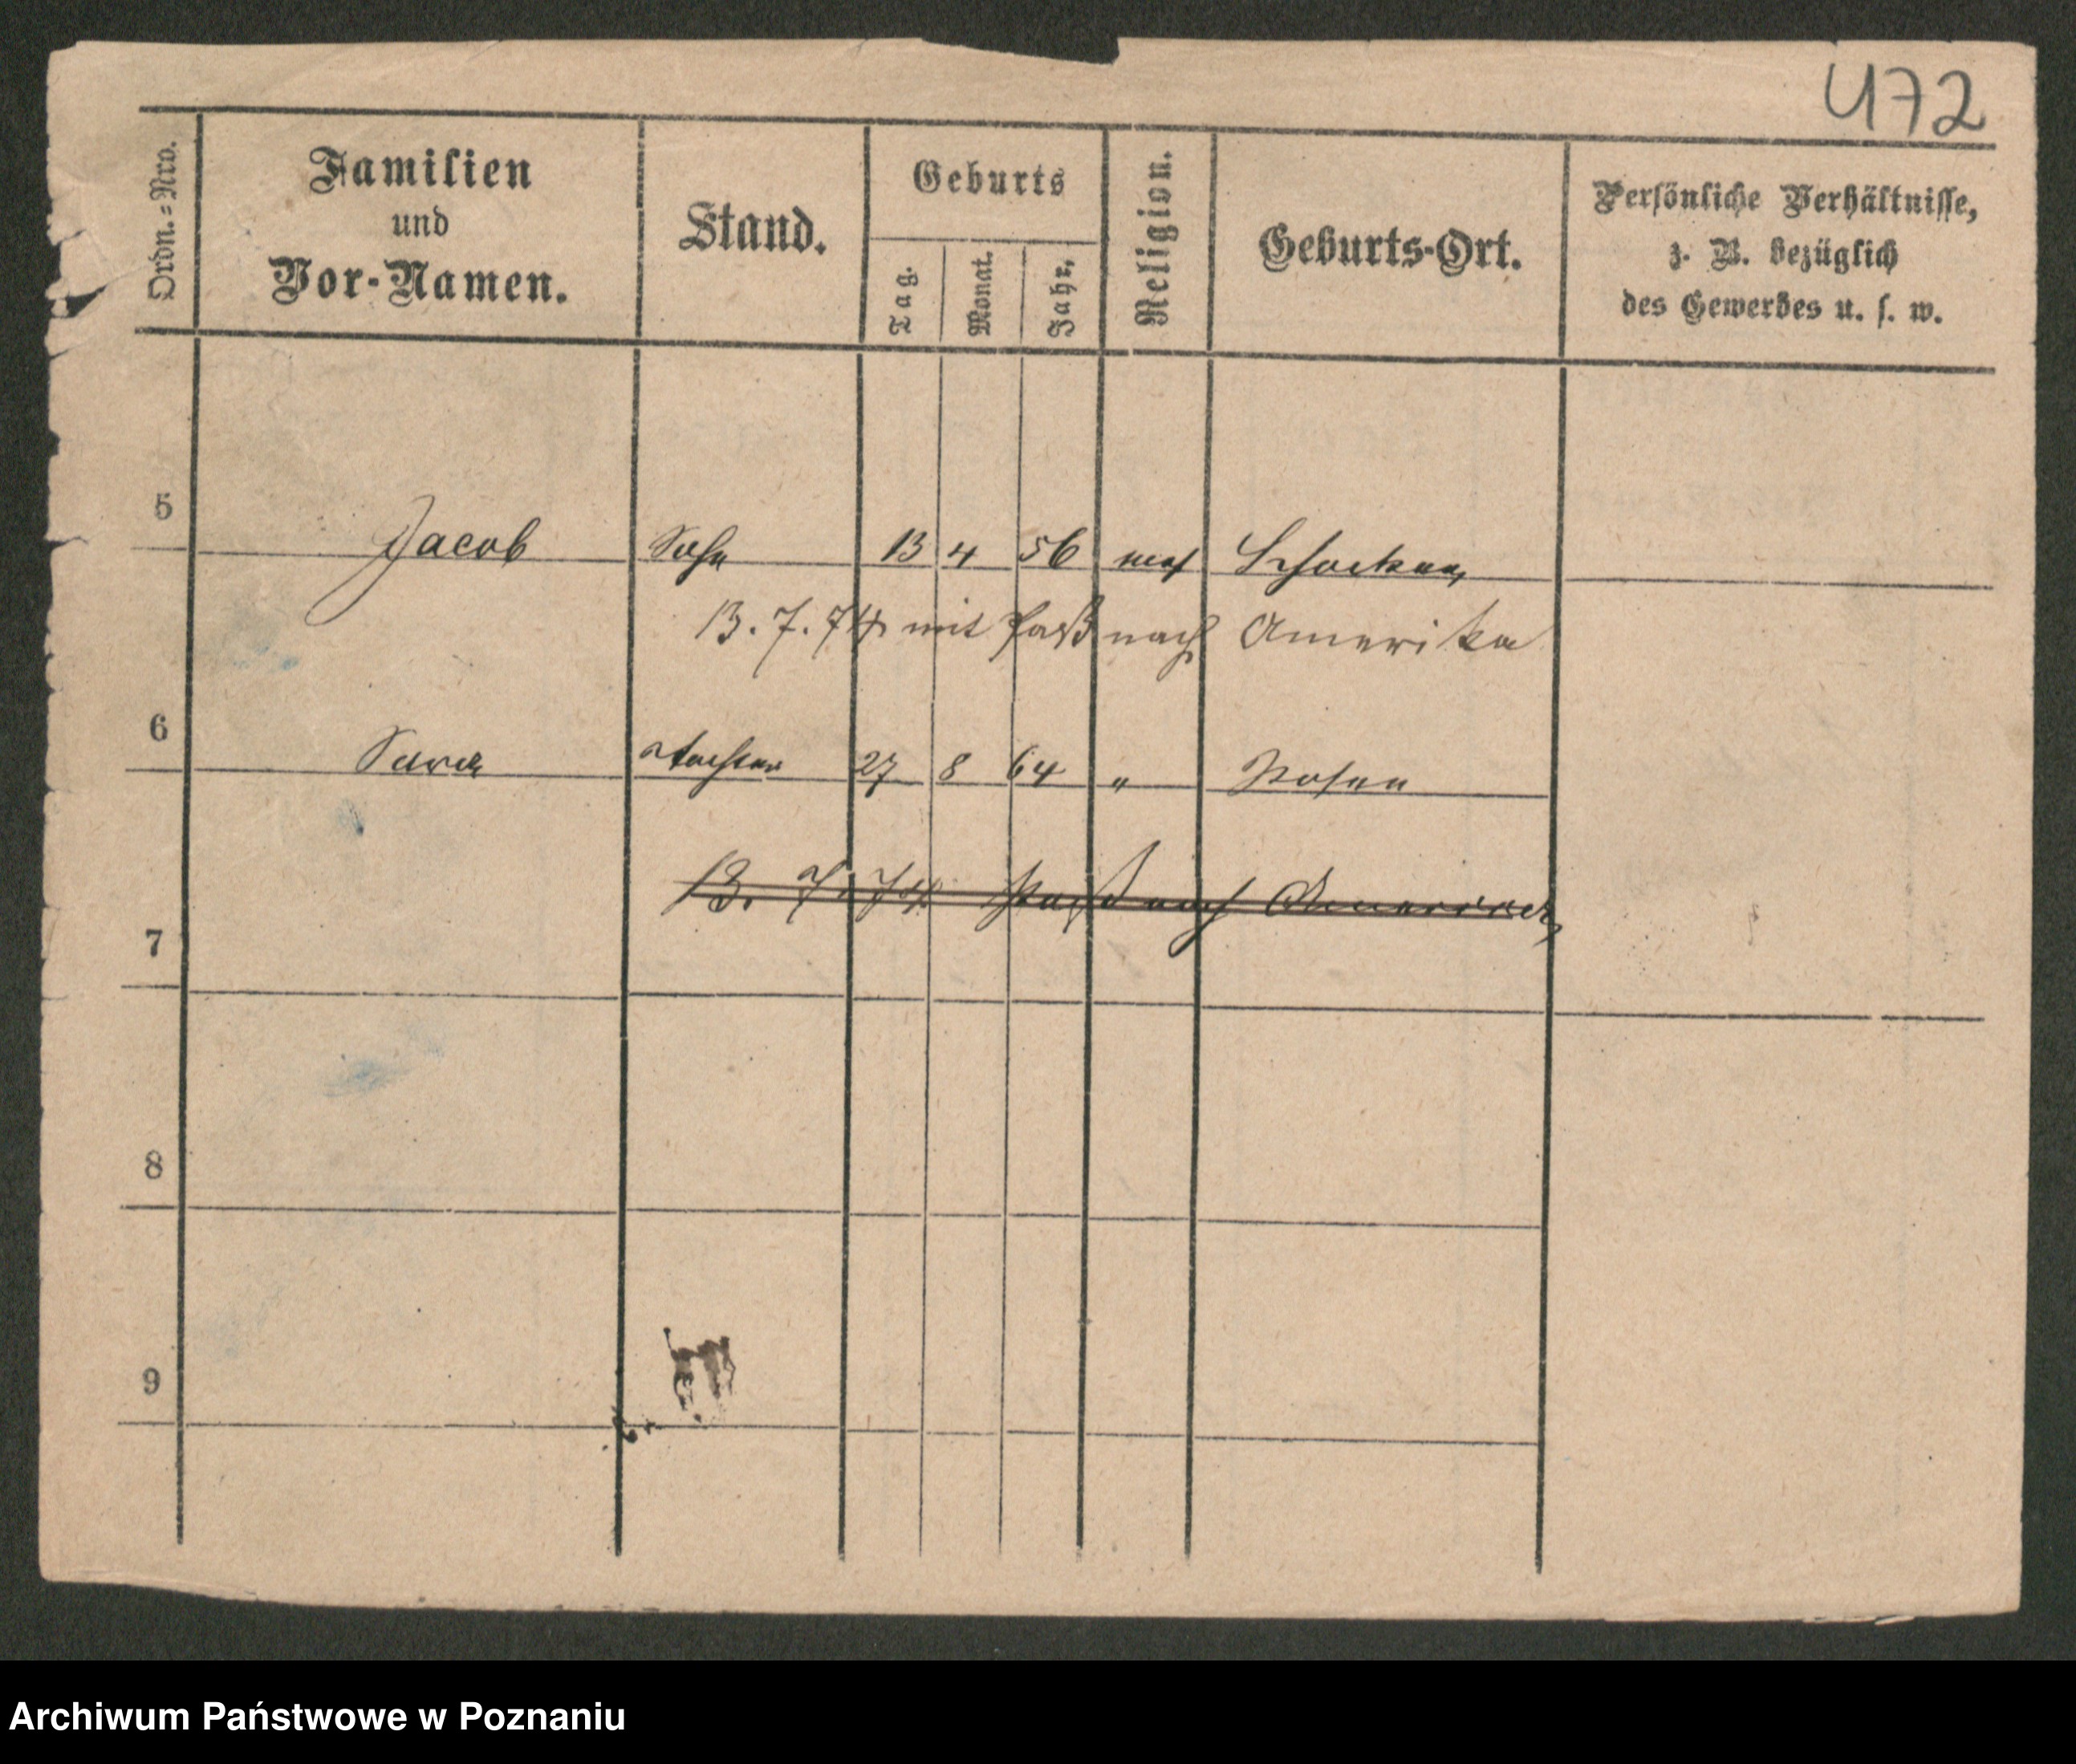 472
Ordn.=Nro.
Familien
und
Vor-Namen.
Stand.
Geburts
Tag.
Monat.
Jahr.
Religion.
Geburts-Ort.
Persönliche Verhältnisse,
z. B. bezüglich
des Gewerbes u. s. w.
5 Jacob Sohn 13 4 56 mos Schocken
13. 7. 74 mit Paß nach Amerika
6 Sara Tochter 27 8 64 " Posen
13. 7. 74 Paß nach America
7
8
9
Archiwum Państwowe w Poznaniu